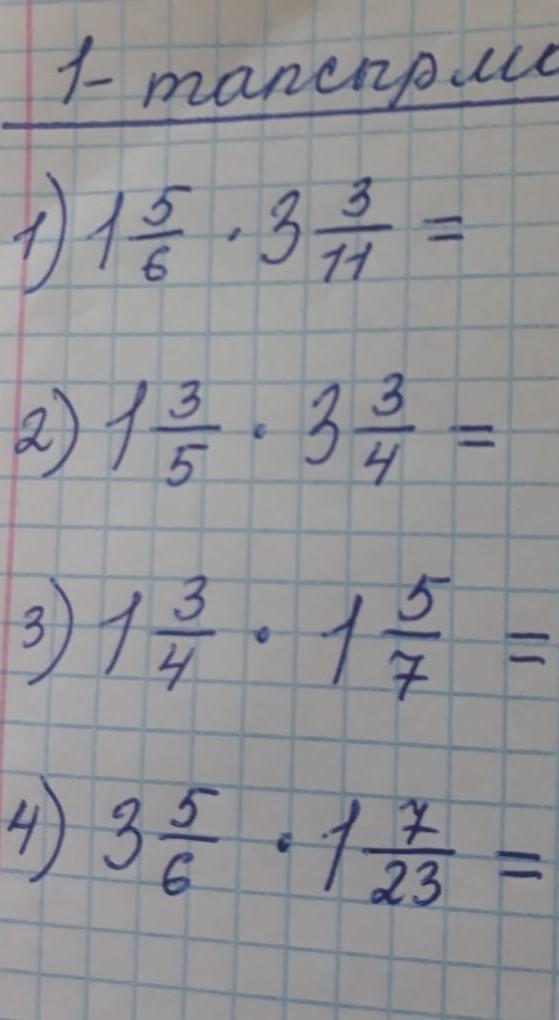 1- тапсырма
1) 1 5/6 · 3 3/11 =
2) 1 3/5 · 3 3/4 =
3) 1 3/4 · 1 5/7 =
4) 3 5/6 · 1 7/23 =